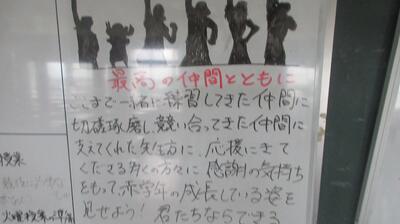 最高の仲間とともに
ここまで一緒に練習してきた仲間に
切磋琢磨し競い合ってきた仲間に
支えてくれた先生方に、応援にきて
くださる多くの方々に感謝の気持ち
をもって赤学年の成長している姿を
見せよう！君たちならできる